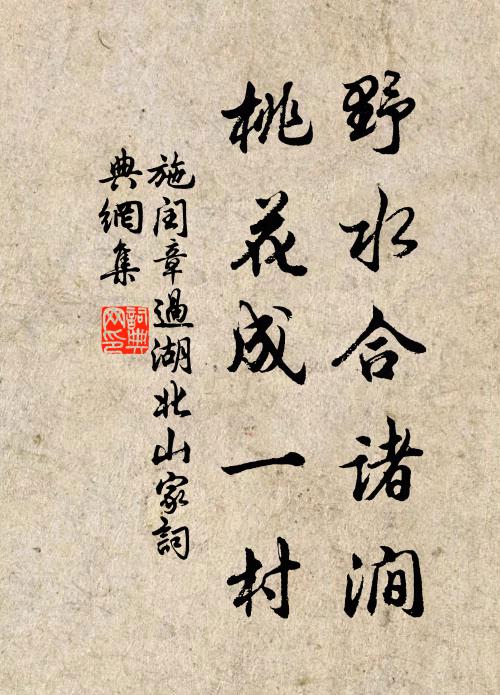 野水合诸涧
桃花成一村
施闰章過湖北山家詞
典網集
詞典网印